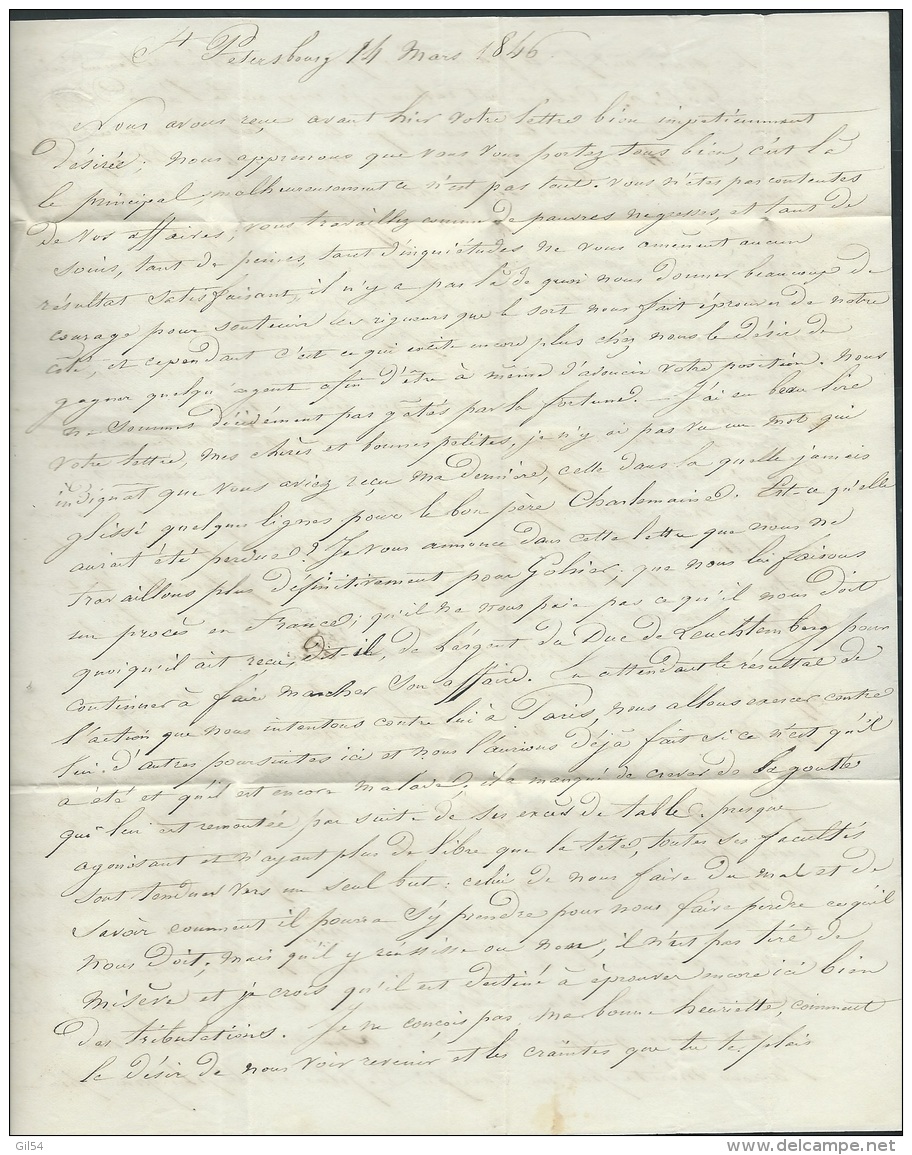 St Petersbourg 14 Mars 1846
Nous avons reçu avant hier votre lettre bien impatiemment
désirée; nous apprenons que vous vous portez tous bien, c'est là
le principal, malheureusement ce n'est pas tout. vous n'êtes pas contentes
de vos affaires, vous travaillez comme de pauvres negresses, et tant de
soins, tant de peines, tant d'inquiétudes ne vous amènent aucun
résultat satisfaisant, il n'y a pas là de quoi nous donner beaucoup de
courage pour soutenir les rigueurs que le sort nous fait éprouver de notre
coté, et cependant c'est ce qui excite encore plus chez nous le désir de
gagner quelqu'argent afin d'être à même d'adoucir votre position. Nous
ne sommes décidément pas gâtés par la fortune. — J'ai eu beau lire
votre lettre, mes chères et bonnes petites, je n'y ai pas vu un mot qui
indiquat que vous aviez reçu ma dernière, celle dans la quelle j'avais
glissé quelques lignes pour le bon père Charlemaine. Est-ce qu'elle
aurait été perdue? Je vous annonce dans cette lettre que nous ne
travaillons plus définitivement pour; que nous lui faisons
un procès en France; qu'il ne nous paie pas ce qu'il nous doit
quoiqu'il ait reçu, dit-il, de l'argent du Duc de Leuchtemberg pour
continuer à faire marcher son affaire. En attendant le résultat de
l'action que nous intentons contre lui à Paris, nous allons exercer contre
lui d'autres poursuites ici et nous l'aurions déjà fait si ce n'est qu'il
a été et qu'il est encore malade. il a manqué de crever de la goutte
qui lui est remontée par suite de ses excès de table. presque
agonisant et n'ayant plus de libre que la tête, toutes ses facultés
sont tendues vers un seul but: celui de nous faire du mal et de
savoir comment il pourra s'y prendre pour nous faire perdre ce qu'il
nous doit; mais qu'il y reussisse ou non, il n'est pas tiré de
misère et je crois qu'il est destiné à éprouver encore ici bien
des tribulations. Je ne conçois pas, ma bonne henriette, comment
le désir de nous voir revenir et les craintes que tu te plais
Gil54
www.delcampe.net